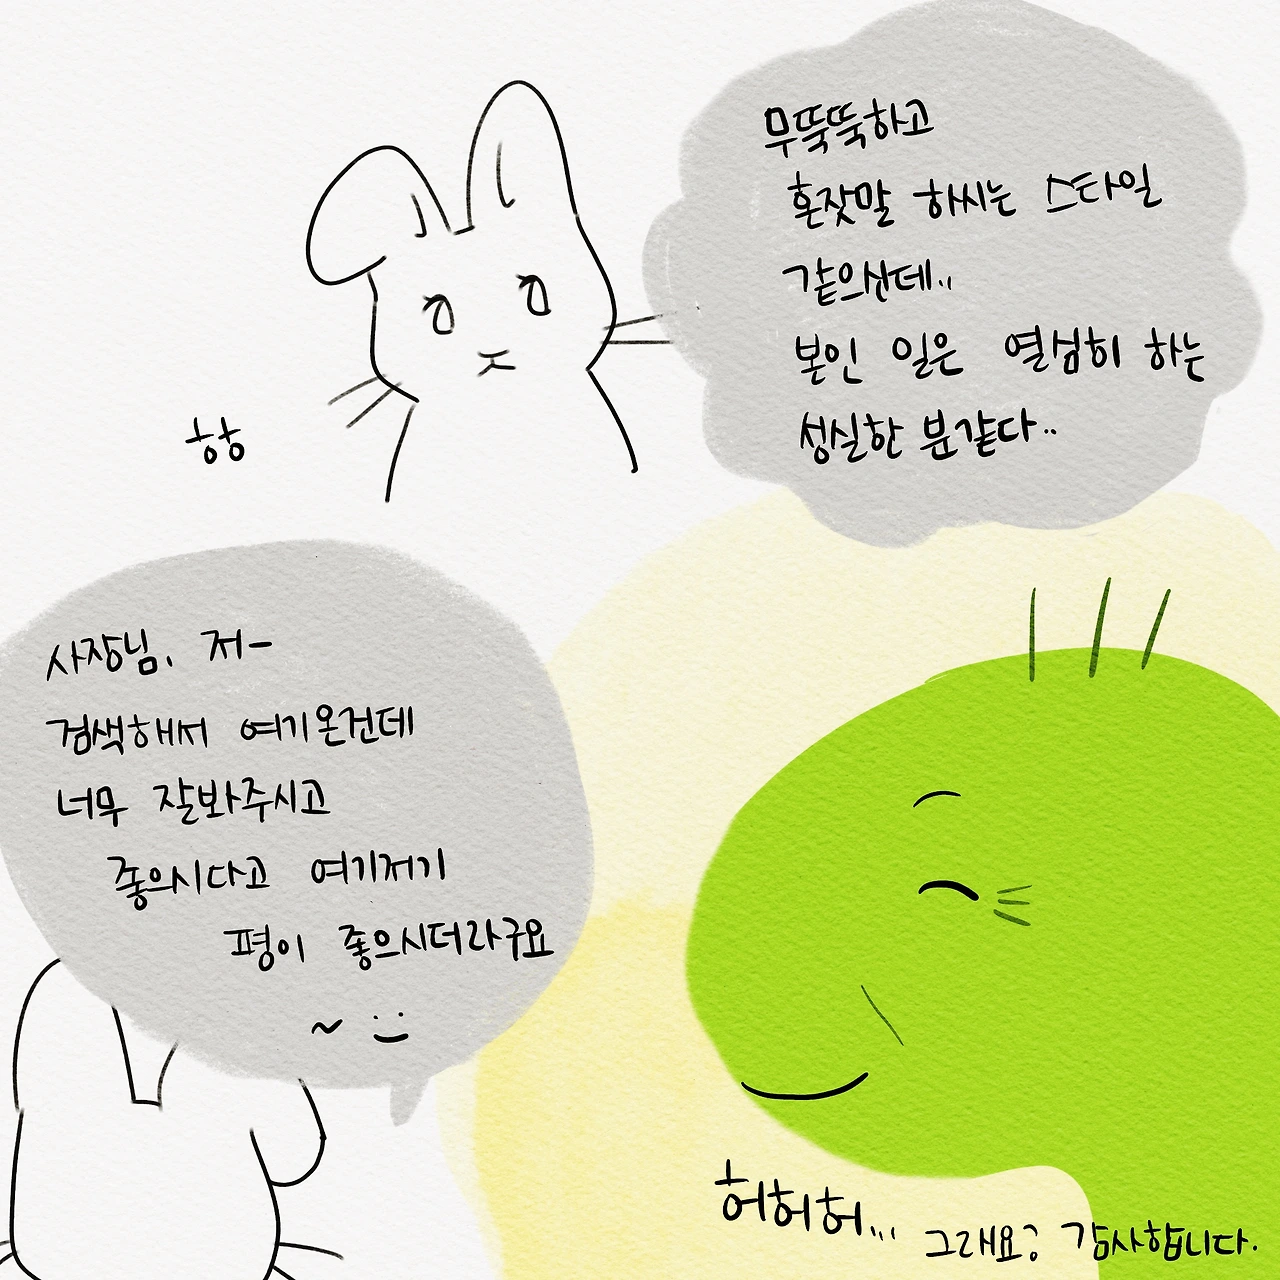 무뚝뚝하고
혼잣말 하시는 스타일
같으신데..
본인 일은 열심히 하는
성실한 분같다..
핳
사장님, 저-
검색해서 여기온건데
너무 잘봐주시고
좋으시다고 여기저기
평이 좋으시더라구요
~
허허허... 그래요? 감사합니다.